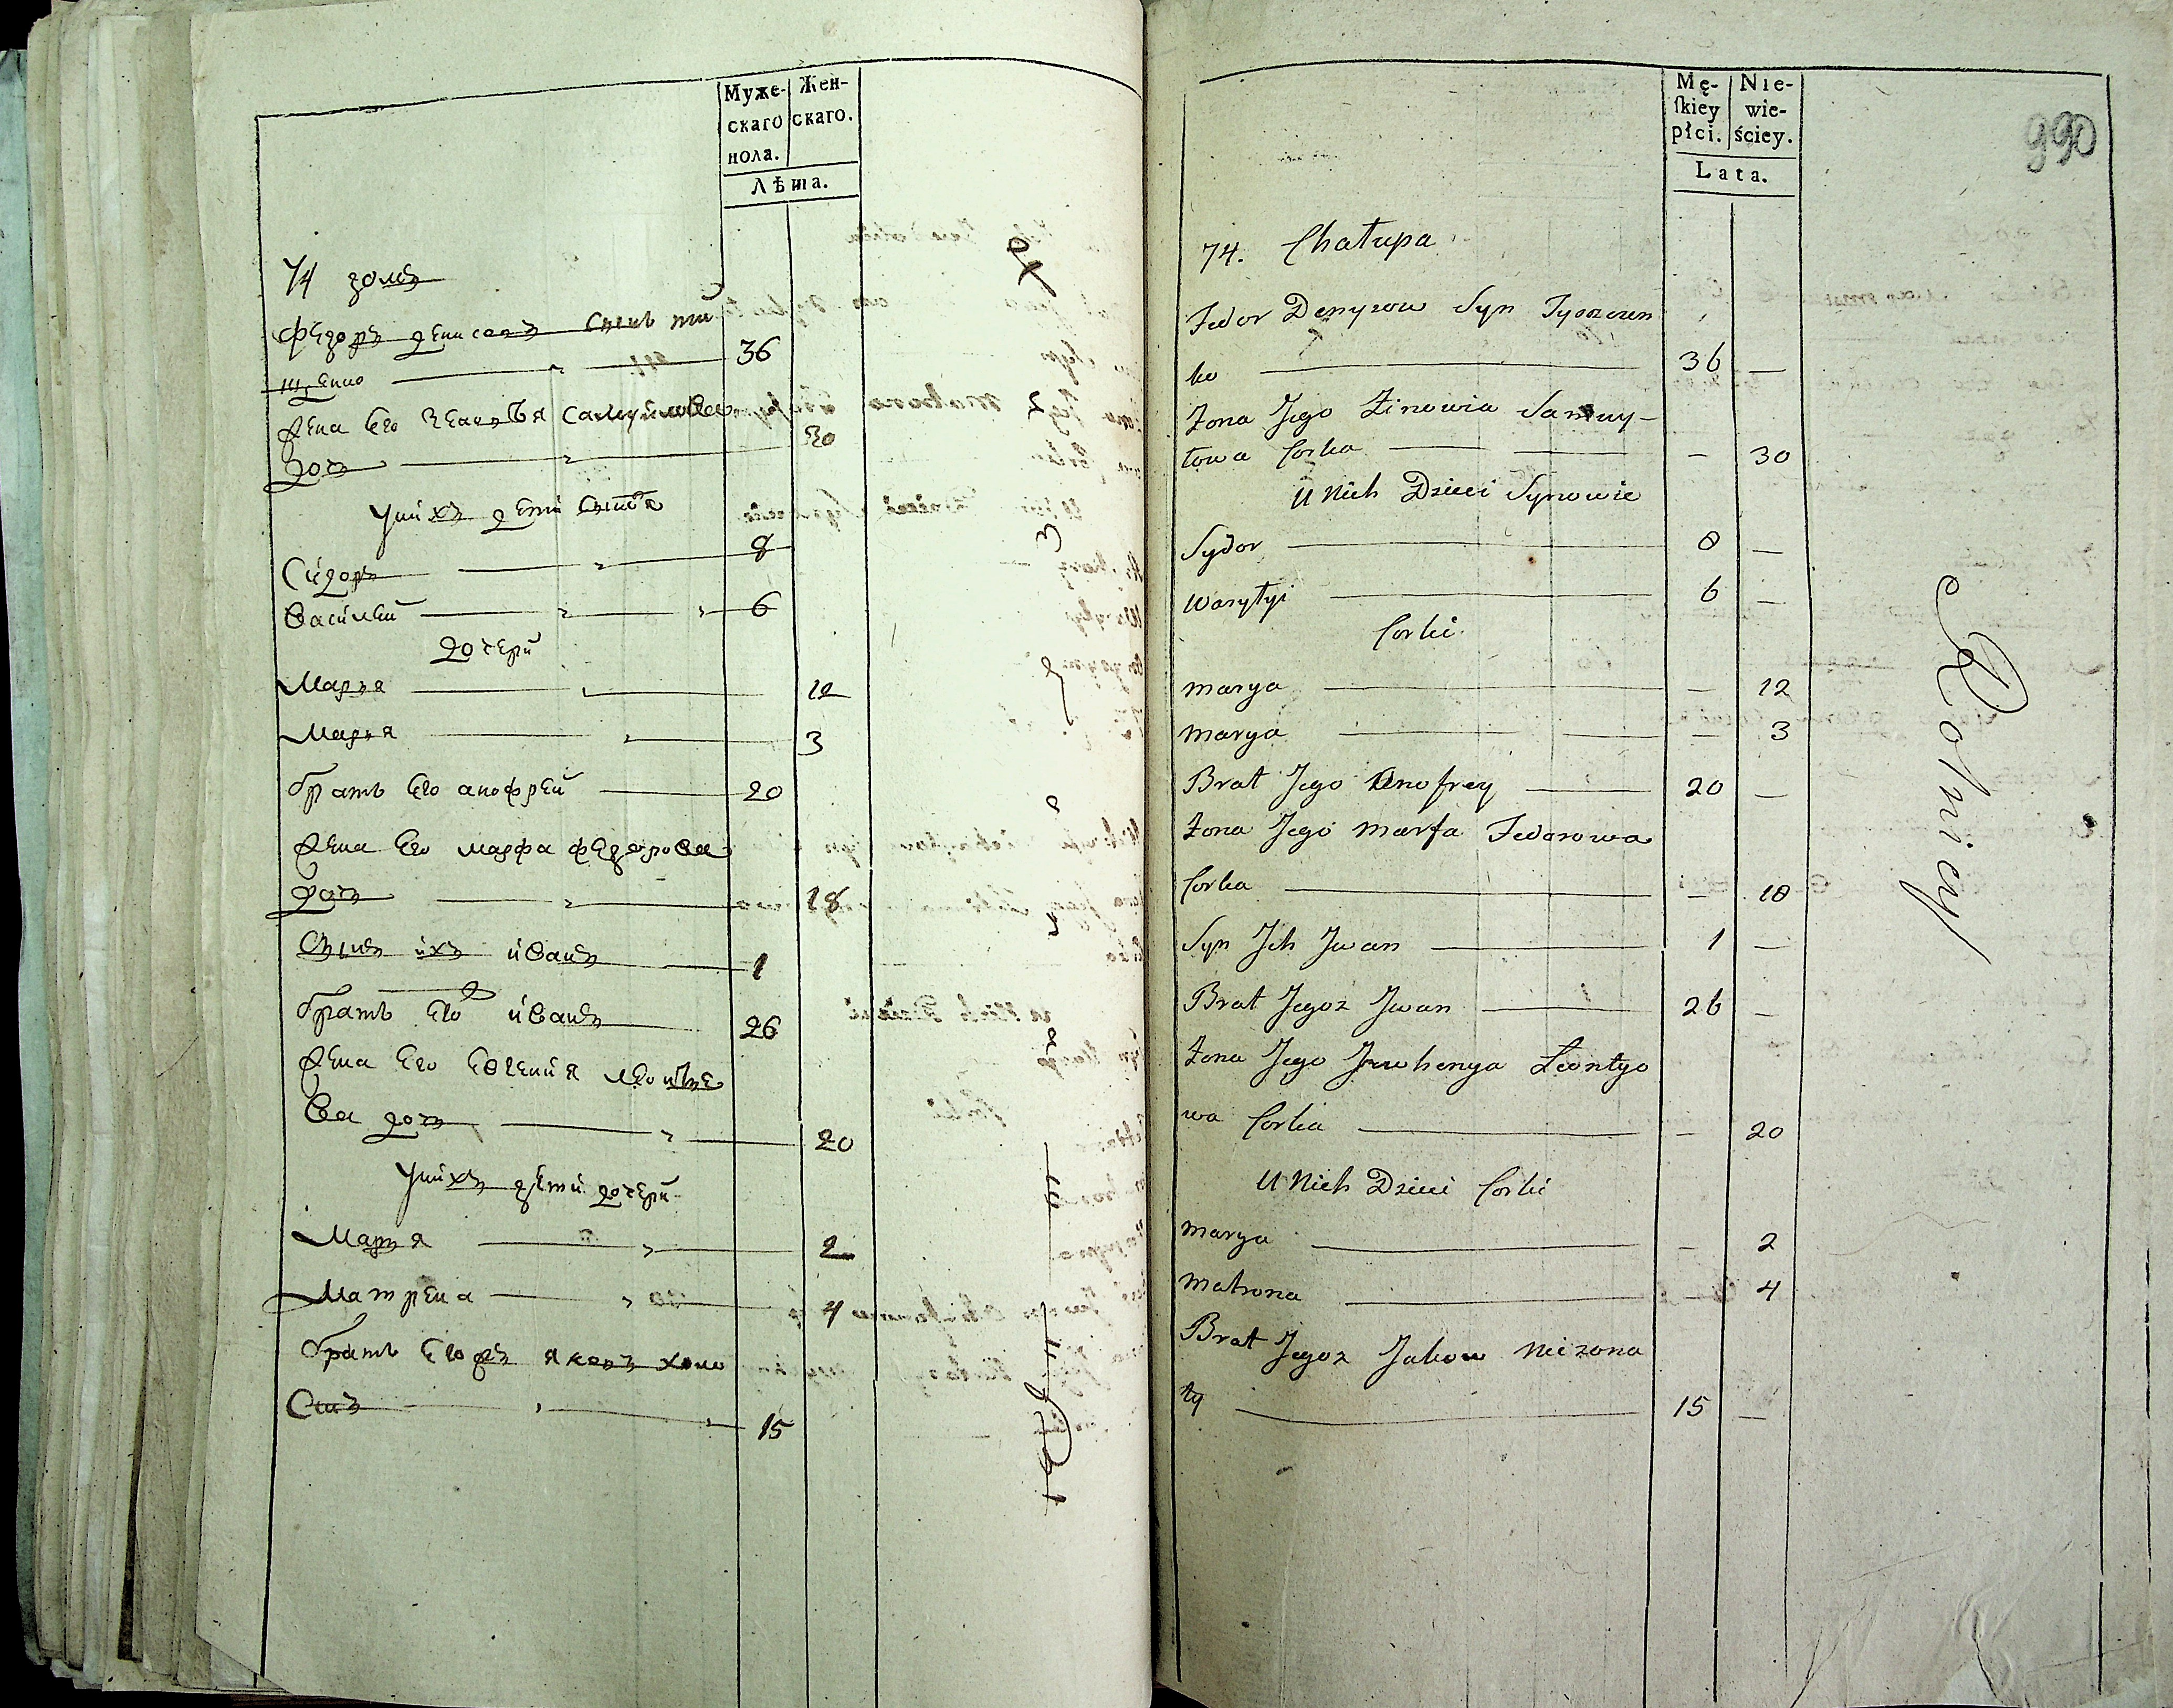 Муже-
скаго
пола.
Жен-
скаго.
Лѣта.
74 домъ
Федоръ денисовъ сынъ ти
шенко 36
жена Его Зеновѣя Самуйлова
дочь 30
У них дети сынов̾я
Сидоръ 8
Василей 6
дочери
Маръя 12
Маръя 3
братъ Его анофрей 20
жена Его марфа федорова
дочь 18
Сынъ ихъ иванъ 1
братъ Его иванъ 26
жена Его Евгения леонтье
ва дочь 20
У нихъ дети дочери
Маръя 2
Матрена 4
братъ Егожъ яковъ холо
стъ 15
990
Mę-
ſkiey
płci.
Nie-
wie-
ściey.
Lata.
74. Chałupa
Fedor Denysow Syn Tyszczen
ko 36 —
Żona Jego Zinowia Samuy-
łowa Corka — 30
U Nich Dzieci Synowie
Sydor 8 —
Wasylyi 6 —
Corki
Marya — 12
Marya — 3
Brat Jego Onofrey 20 —
Żona Jego Marfa Fedorowa
Corka — 18
Syn Ich Jwan 1 —
Brat Jegoż Jwan 26 —
Żona Jego Jewhenya Leontyo
wa Corka — 20
U Nich Dzieci Corki
Marya — 2
Matrona — 4
Brat Jegoż Jakow Nieżona
ty 15 —
Rolnicy